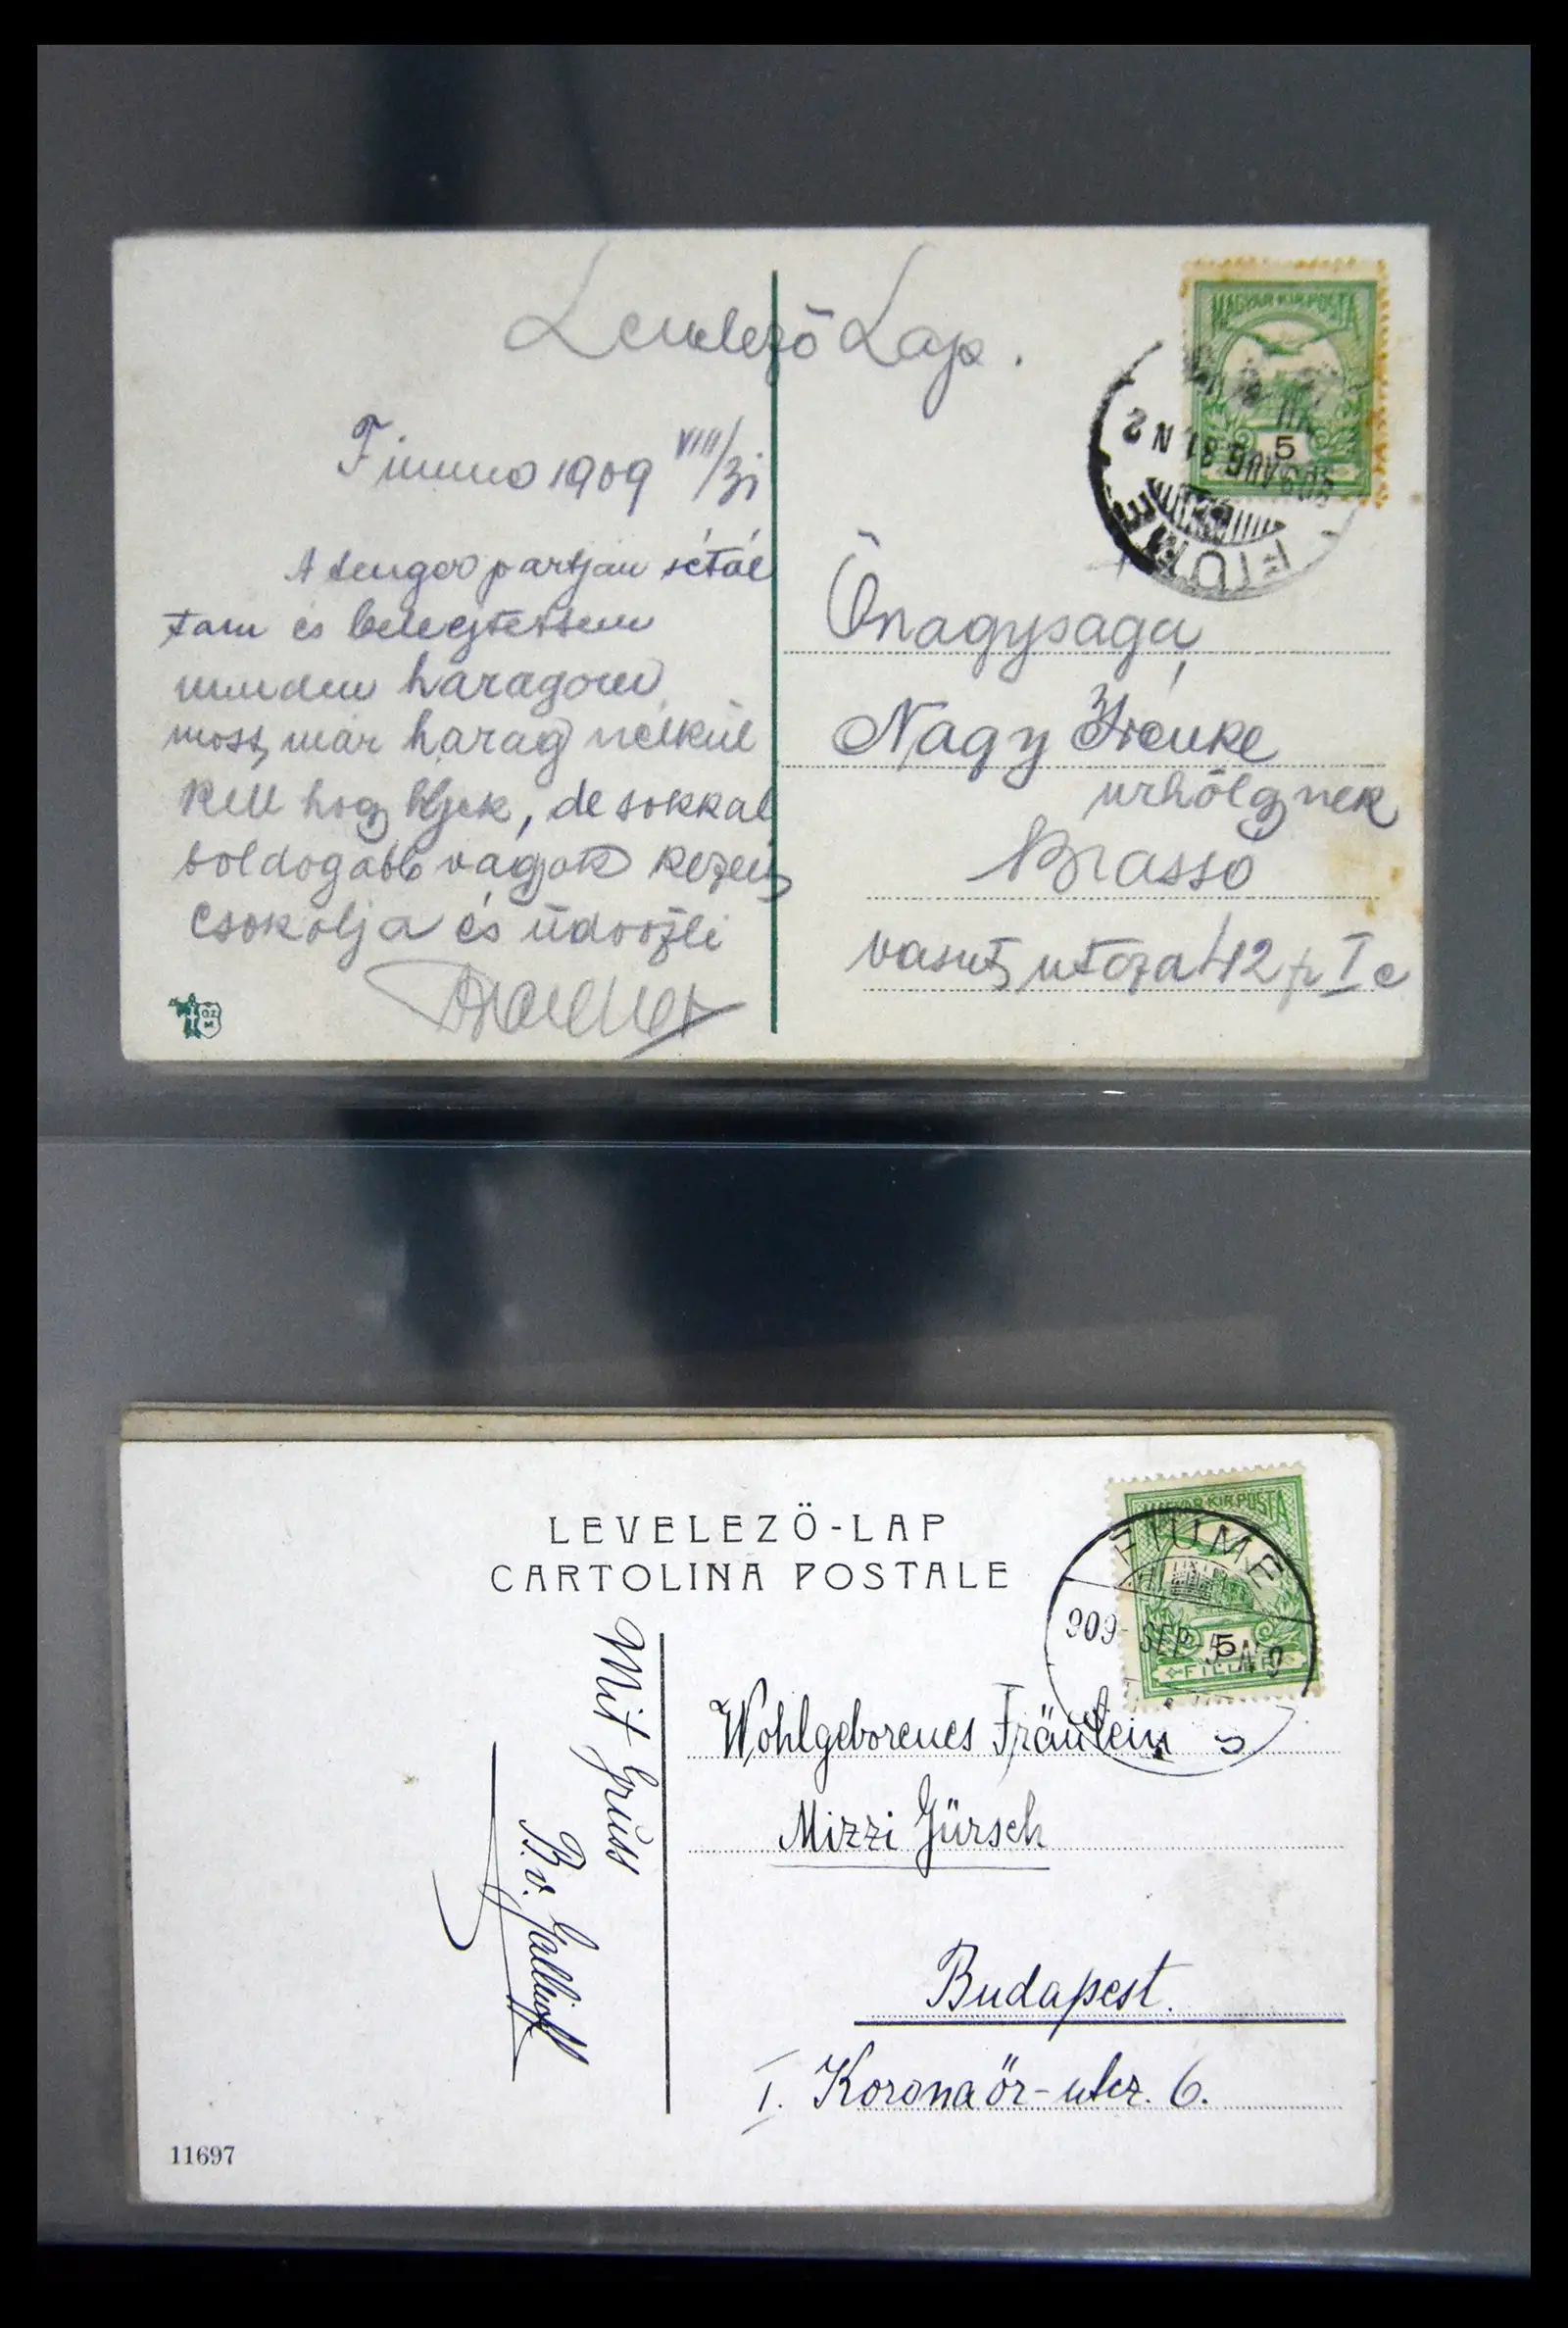 Levelező Lap.
Fiume 1909 VIII/31
A tenger partján sétál
tam és belefojtottam
minden haragom
most már harag nélkül
kell hogy éljek, de sokkal
boldogabb vagyok kezeit
csokolja és üdvözli
MAGYAR KIR. POSTA
5
FIUME
909 AUG 31 N 2
Őnagysága
Nagy Irénke
urhölgynek
Brassó
vasut utcza 42 p I e
LEVELEZŐ-LAP
CARTOLINA POSTALE
MAGYAR KIR. POSTA
5
FILLÉR
FIUME
909 SEP
Mit Gruss
Wohlgeborenes Fräulein
Mizzi Gürsch
Budapest.
I. Koronaőr-utcz. 6.
11697